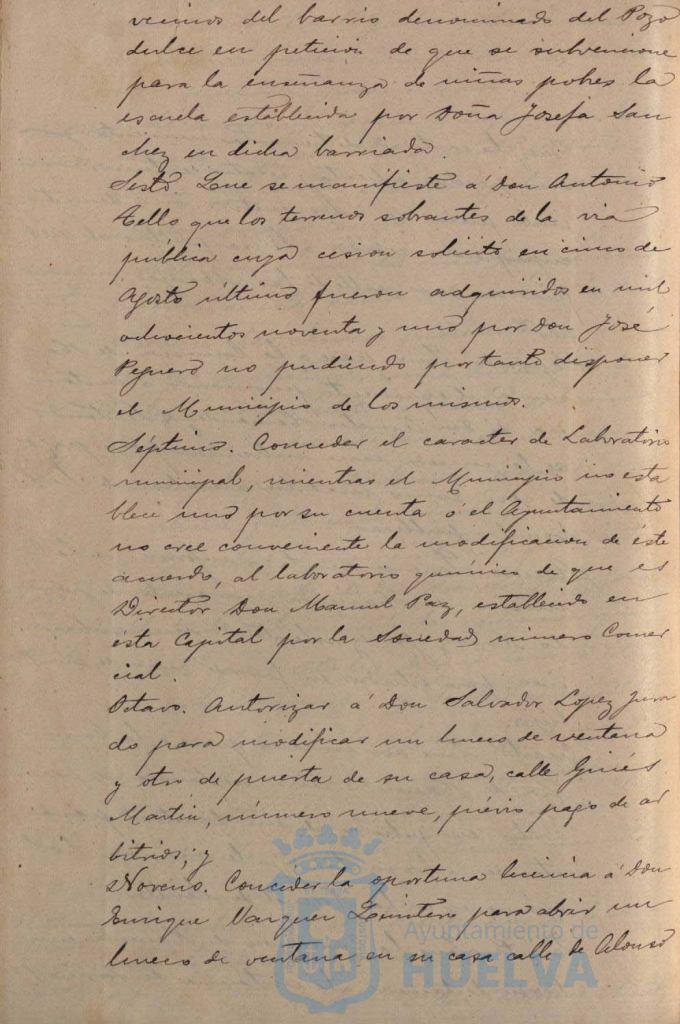 vecinos del barrio denominado del Pozo
dulce en peticion de que se subvencione
para la enseñanza de niñas pobres la
escuela establecida por Doña Josefa San
chez en dicha barriada.
Sesto. Que se manifieste á Don Antonio
Tello que los terrenos sobrantes de la via
pública cuya cesion solicitó en cinco de
Agosto último fueron adquiridos en mil
ochocientos noventa y uno por Don José
Peguero no pudiendo por tanto disponer
el Municipio de los mismos.
Séptimo. Conceder el caracter de Laboratorio
municipal, mientras el Municipio no esta
blece uno por su cuenta ó el Ayuntamiento
no cree conveniente la modificacion de éste
acuerdo, al laboratorio químico de que es
Director Don Manuel Paz, establecido en
ésta Capital por la Sociedad minero Comer
cial.
Octavo. Autorizar á Don Salvador Lopez Jura
do para modificar un hueco de ventana
y otro de puerta de su casa, calle Ginés
Martin, número nueve, prévio pago de ar
bitrios; y
Noveno. Conceder la oportuna licencia á Don
Enrique Vazquez Quintero para abrir un
hueco de ventana en su casa calle de Alonso
Ayuntamiento de
HUELVA